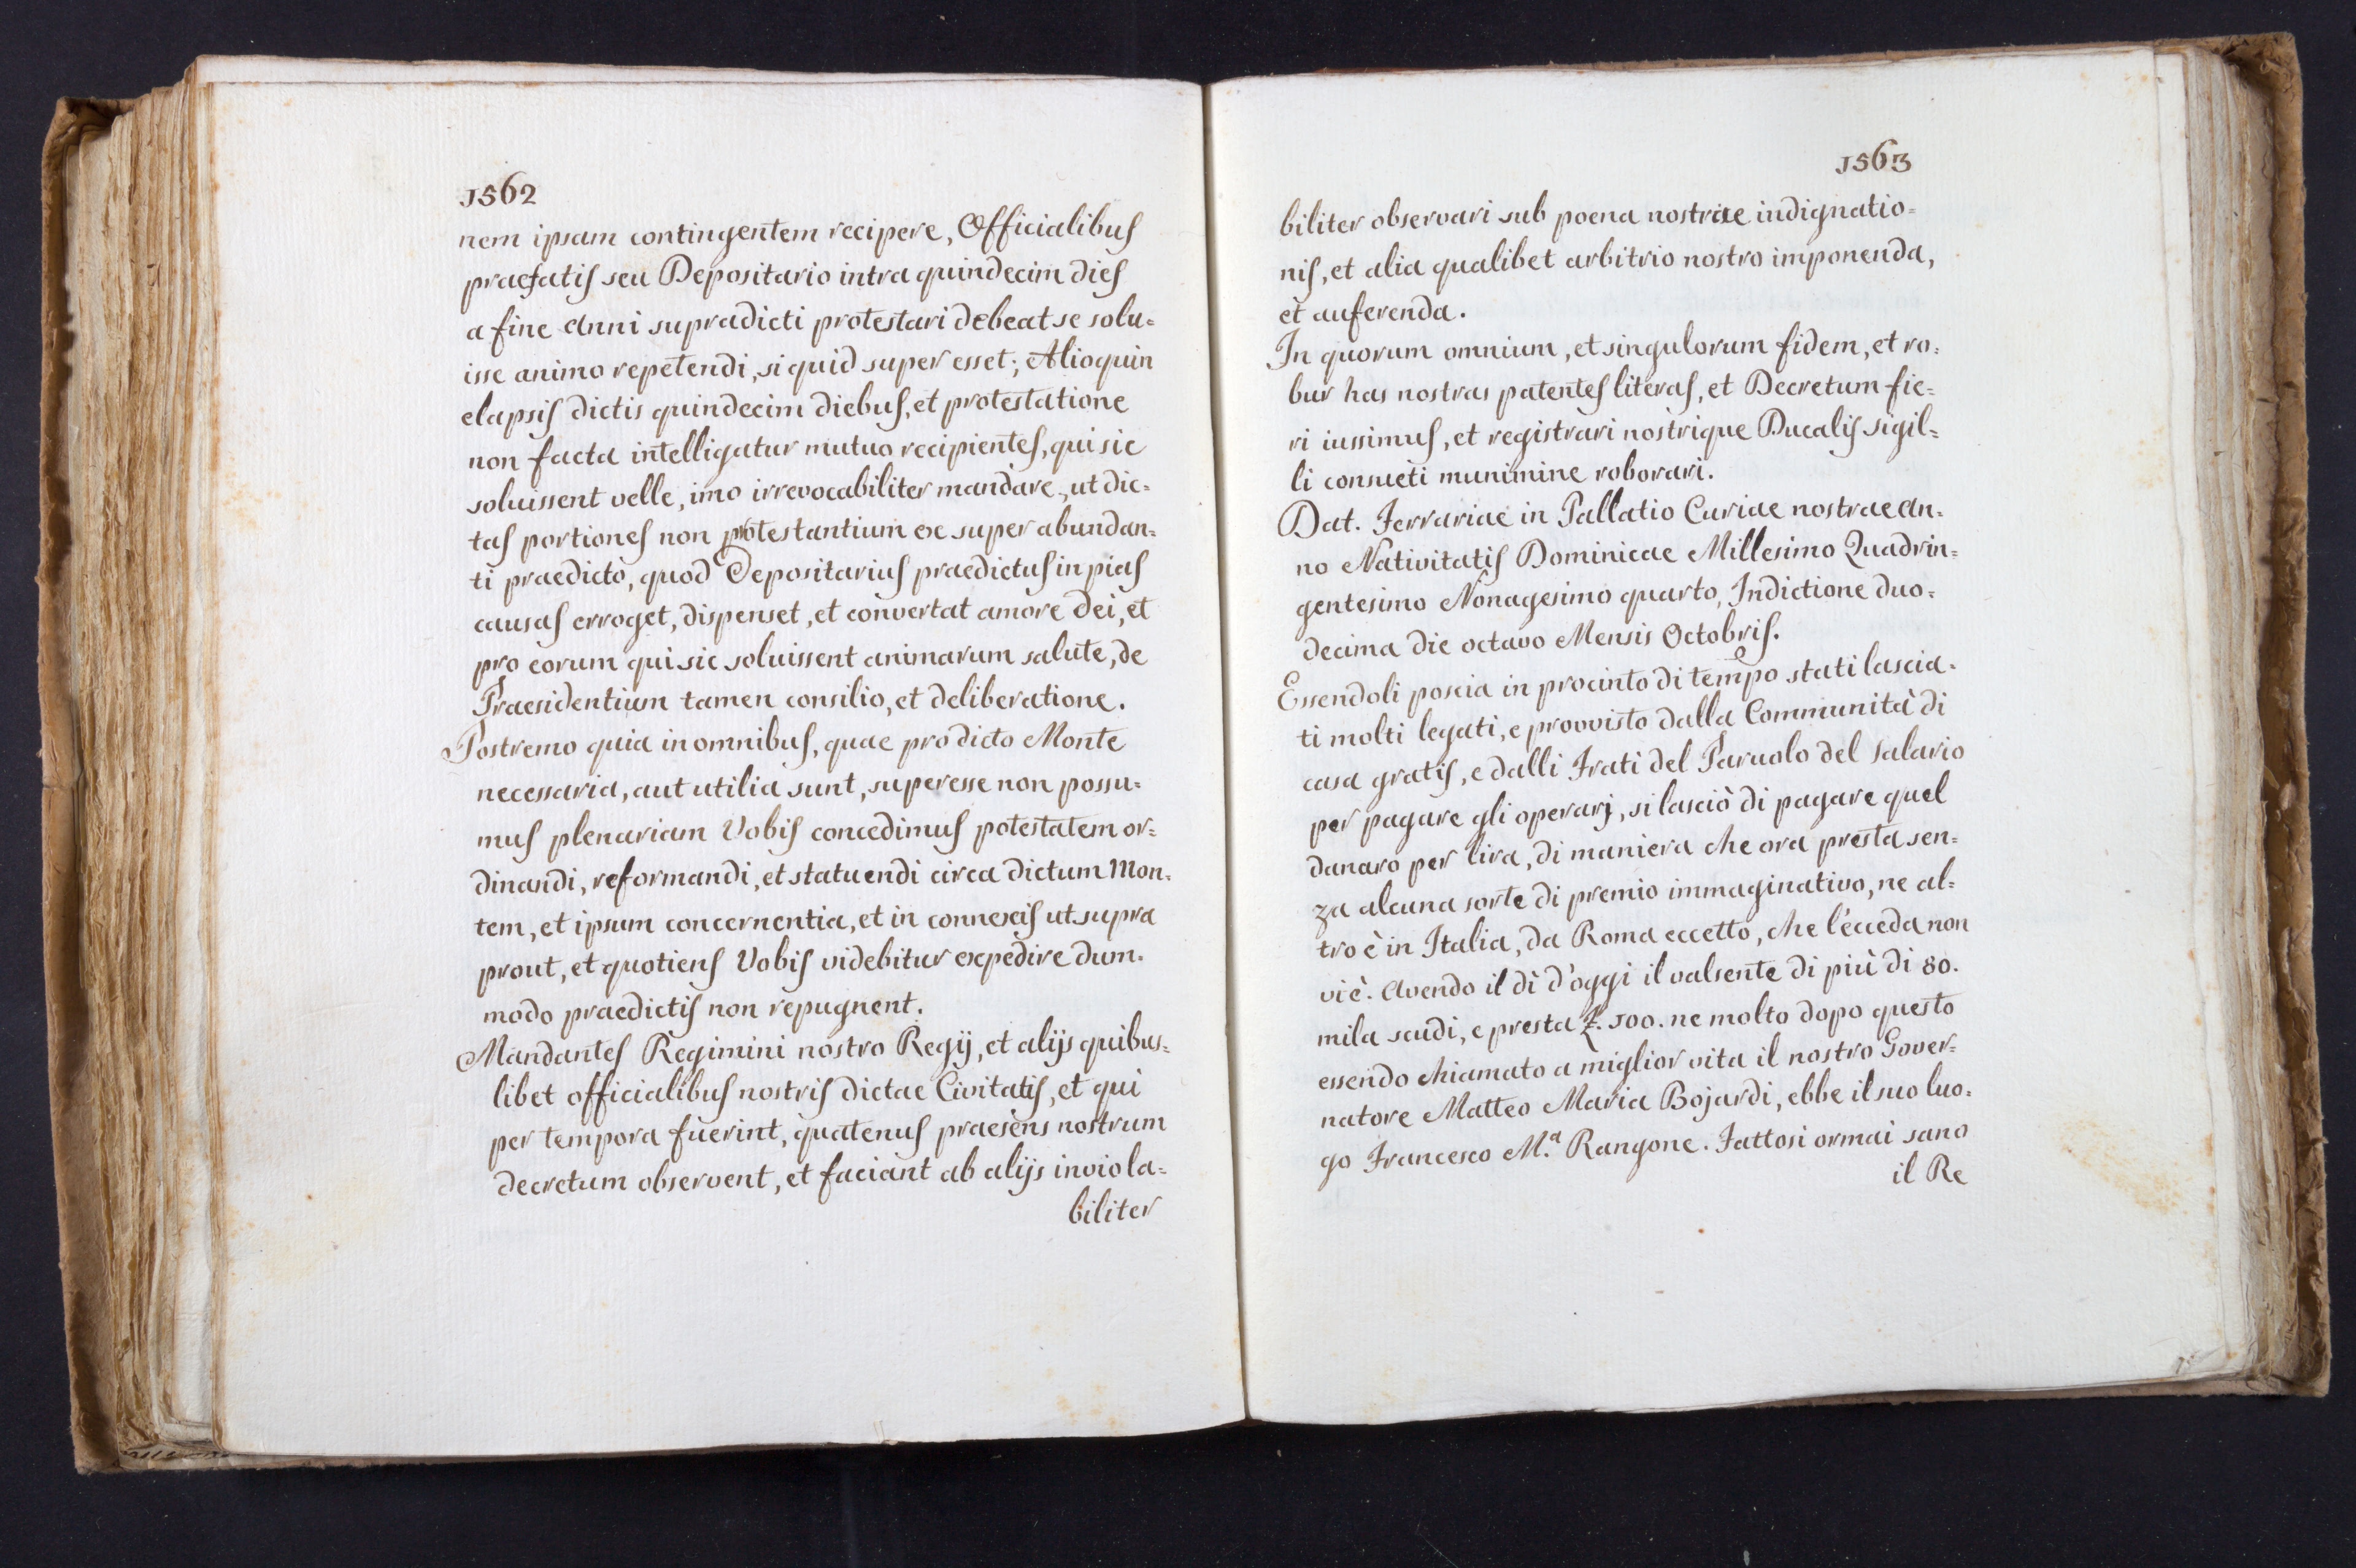 1562
nem ipsam contingentem recipere, Officialibus
praefatis seu Depositario intra quindecim dies
a fine Anni supradicti protestari debeat se solu=
isse animo repetendi, si quid super esset; Alioquin
elapsis dictis quindecim diebus, et protestatione
non facta intelligatur mutuo recipientes, qui sic
soluissent velle, imo irrevocabiliter mandare, ut dic=
tas portiones non protestantium ex super abundan=
ti praedicto, quod Depositarius praedictus in pias
causas erroget, dispenset, et convertat amore Dei, et
pro eorum qui sic soluissent animarum salute, de
Praesidentium tamen consilio, et deliberatione.
Postremo quia in omnibus, quae pro dicto Monte
necessaria, aut utilia sunt, superesse non possu=
mus plenariam Vobis concedimus potestatem or=
dinandi, reformandi, et statuendi circa dictum Mon=
tem, et ipsum concernentia, et in connexis ut supra
prout, et quotiens Vobis videbitur expedire dum=
modo praedictis non repugnent.
Mandantes Regimini nostro Regij, et alijs quibus=
libet officialibus nostris dictae Civitatis, et qui
per tempora fuerint, quatenus praesens nostrum
decretum observent, et faciant ab alijs inviola=
biliter
1563
biliter observari sub poena nostrae indignatio=
nis, et alia qualibet arbitrio nostro imponenda,
et auferenda.
In quorum omnium, et singulorum fidem, et ro=
bur has nostras patentes literas, et Decretum fie=
ri iussimus, et registrari nostrique Ducalis sigil=
li consueti munimine roborari.
Dat. Ferrariae in Pallatio Curiae nostrae An=
no Nativitatis Dominicae Millesimo Quadrin=
gentesimo Nonagesimo quarto, Indictione duo=
decima die octavo Mensis Octobris.
Essendoli poscia in procinto di tempo stati lascia=
ti molti legati, e provvisto dalla Communità di
casa gratis, e dalli Frati del Paruolo del salario
per pagare gli operarj, si lasciò di pagare quel
danaro per lira, di maniera che ora presta sen=
za alcuna sorte di premio immaginativo, ne al=
tro è in Italia, da Roma eccetto, che l'ecceda non
vi è. Avendo il dì d'oggi il valsente di più di 80.
mila scudi, e presta £. 500. ne molto dopo questo
essendo chiamato a miglior vita il nostro Gover=
natore Matteo Maria Bojardi, ebbe il suo luo=
go Francesco M.a Rangone. Fattosi ormai sano
il Re